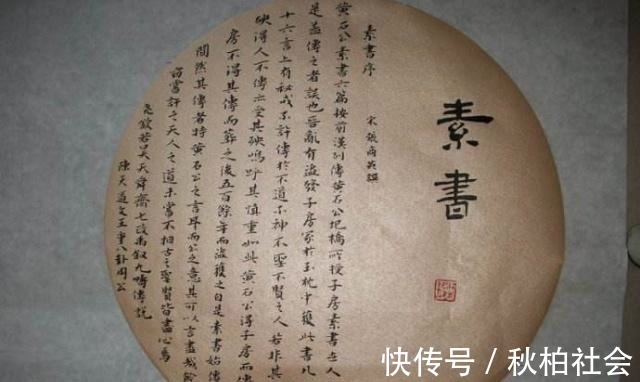 素書
素書序
宋張商英撰
黄石公素書六篇按前漢列傳黄石公圯橋所授子房素書世人
是蓋傳之者誤也晉亂有盜發子房冢於玉枕中獲此書凡
十六言上有秘戒不許傳於不道不神不聖不賢之人若非其
殃得人不傳亦受其殃嗚呼其慎重如此黄石公得子房而傳
房不得其傳而葬之後五百餘年而盜獲之自是素書始傳
間然其傳者特黄石公之言耳而公之意其可以言盡哉餘
竊嘗評之天人之道未嘗不相古之聖賢皆盡心焉
堯欽若昊天舜齊七政禹叙九疇傅說
陳天道文王重八卦周公
快传号 / 秋柏社会